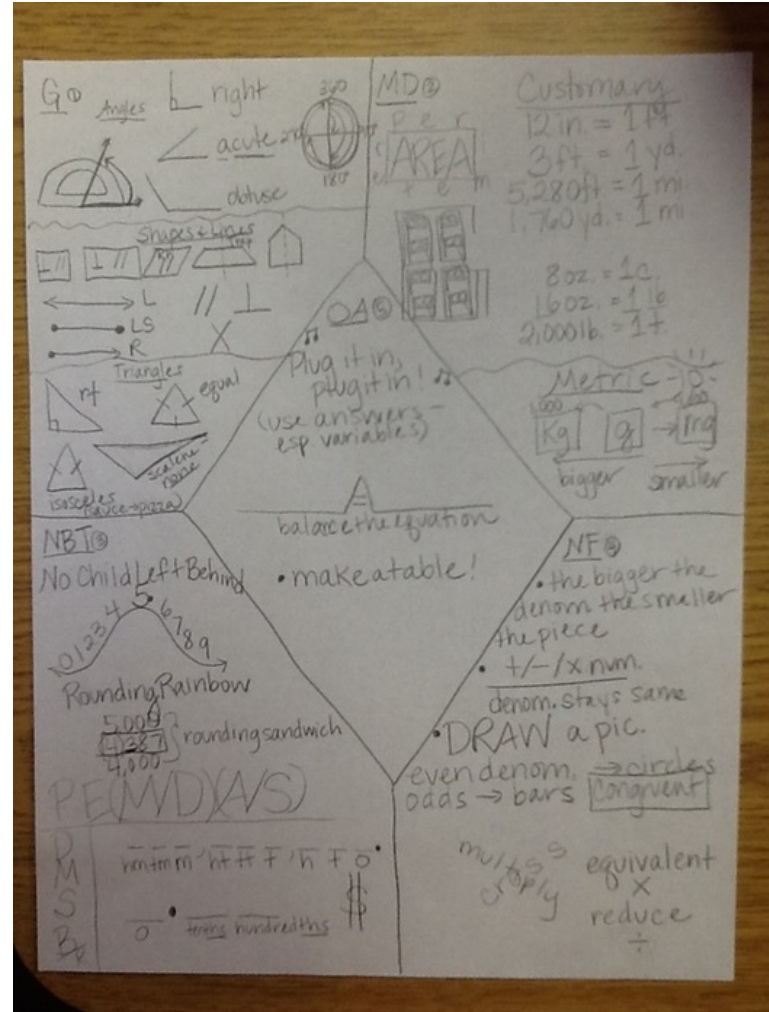 G①
Angles
right
acute
obtuse
360
180°
Shapes & Lines
trap
L
LS
R
Triangles
rt
equal
scalene
none
isosceles
(sauce→pizza)
MD②
Per
AREA
i
m
e t e
Customary
12 in. = 1 ft
3 ft. = 1 yd.
5,280 ft = 1 mi.
1,760 yd. = 1 mi
8 oz. = 1 c.
16 oz. = 1 lb
2,000 lb. = 1 t.
Metric
1,000
Kg g → mg
bigger smaller
OA⑤
Plug it in,
plug it in!
(use answers –
esp variables)
balance the equation
• make a table!
NBT③
No Child Left Behind
0 1 2 3 4 5 6 7 8 9
Rounding Rainbow
5,000
4,387
4,000
rounding sandwich
PE(M/D)(A/S)
D
M
S
B
hm tm m , ht tt t , h t o .
o . tenths hundredths
$
NF④
• the bigger the
denom. the smaller
the piece
• +/−/x num.
denom. stays same
• DRAW a pic.
even denom. → circles
odds → bars congruent
multiply
cross
equivalent
×
reduce
÷